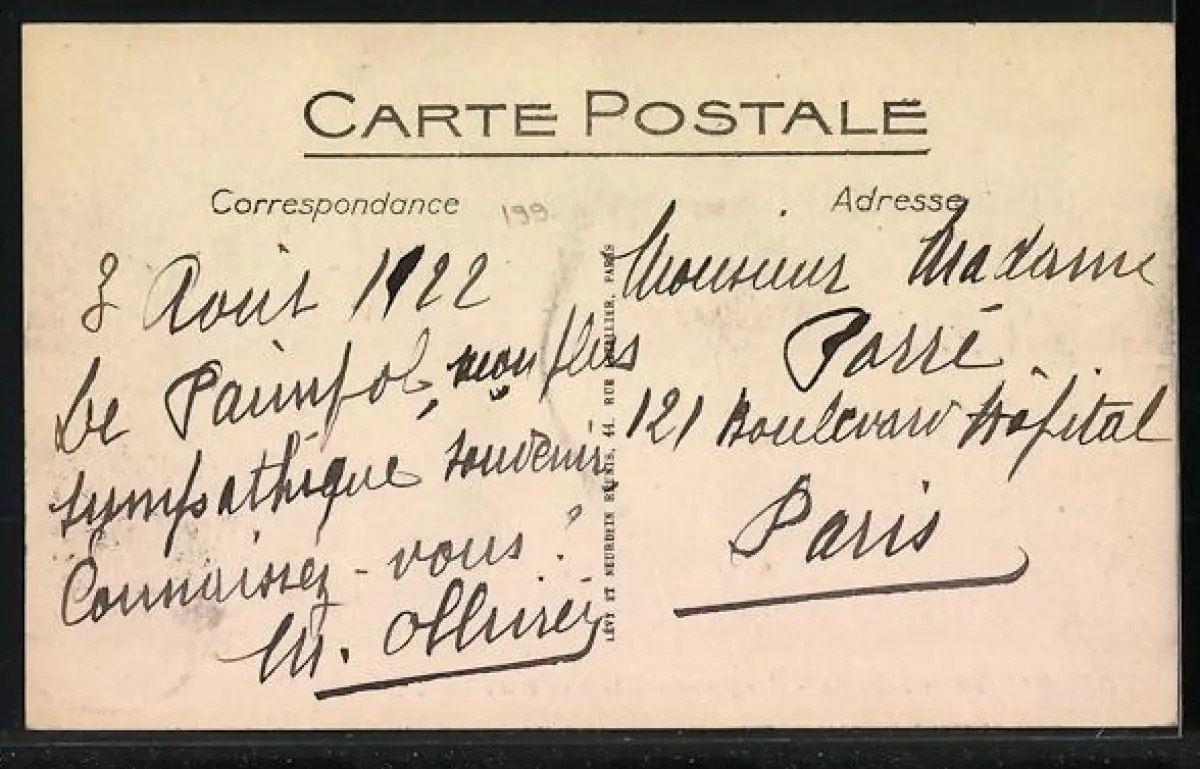 CARTE POSTALE
Correspondance
199
Adresse
3 Août 1922
De Paimpol, mon plus
sympathique souvenir
Connaissez-vous?
M.
LÉVY ET NEURDEIN RÉUNIS, 44, RUE LETELLIER, PARIS
Monsieur Madame
Parré
121 Boulevard Hôpital
Paris